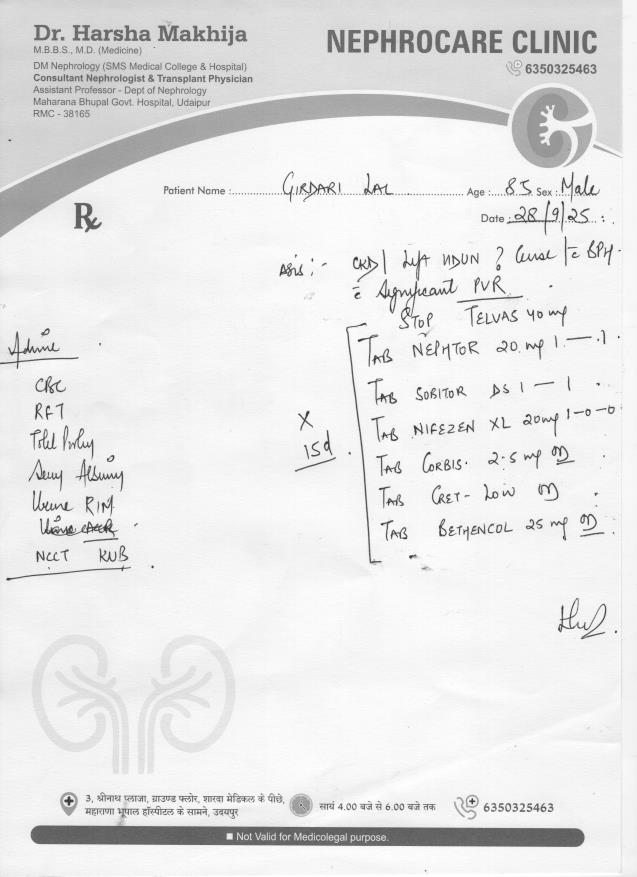 Dr. Harsha Makhija
M.B.B.S., M.D. (Medicine)
DM Nephrology (SMS Medical College & Hospital)
Consultant Nephrologist & Transplant Physician
Assistant Professor - Dept of Nephrology
Maharana Bhupal Govt. Hospital, Udaipur
RMC - 38165
NEPHROCARE CLINIC
6350325463
Patient Name : GIRDARI LAL Age : 85 Sex : Male
Rx
Date : 28/9/25
CKD / Left HDUN ? Cause / c̄ BPH
c̄ Significant PVR
STOP TELVAS 40 mg
TAB NEPHTOR 20 mg 1 — 1
TAB SOBITOR DS 1 — 1
TAB NIFEZEN XL 20mg 1-0-0
TAB CORBIS 2.5 mg OD
TAB CRET-LOW OD
TAB BETHENCOL 25 mg OD
X
15d
CBC
RFT
Urine R/M
NCCT KUB
3, श्रीनाथ प्लाजा, ग्राउण्ड फ्लोर, शारदा मेडिकल के पीछे,
महाराणा भूपाल हॉस्पीटल के सामने, उदयपुर
सायं 4.00 बजे से 6.00 बजे तक
6350325463
Not Valid for Medicolegal purpose.